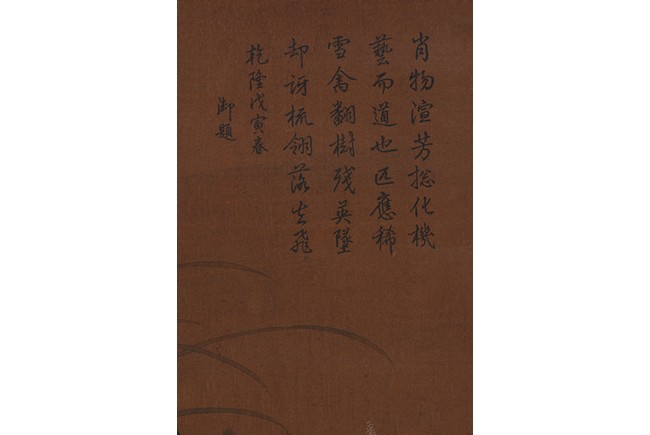 肖物渲芳揔化機
藝而道也匹應稀
雪禽翻樹殘英墜
却訝梳翎落去飛
乾隆戊寅春
御題